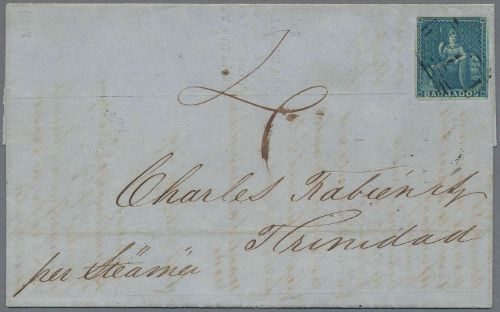 BARBADOS
4
Charles Rabiénitz
Trinidad
per Steämer